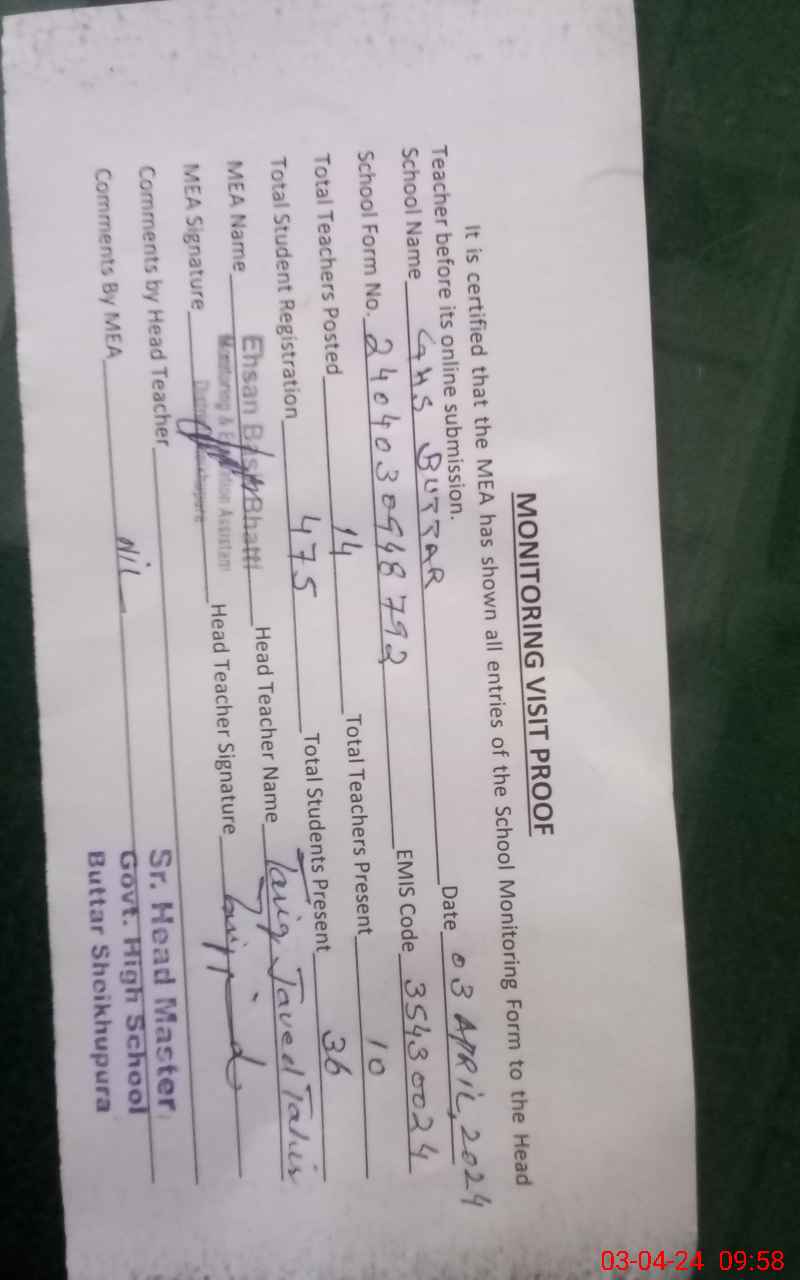 MONITORING VISIT PROOF
It is certified that the MEA has shown all entries of the School Monitoring Form to the Head
Teacher before its online submission.
School Name GHS BUTTAR Date 03 APRIL, 2024
School Form No. 2404030948792 EMIS Code 35430024
Total Teachers Posted 14 Total Teachers Present 10
Total Student Registration 475 Total Students Present 36
MEA Name Ehsan Bhatti Head Teacher Name Tariq Javed Tahir
Monitoring & Assistant
MEA Signature Head Teacher Signature
Comments by Head Teacher
Comments By MEA NIL
Sr. Head Master
Govt. High School
Buttar Sheikhupura
03-04-24 09:58